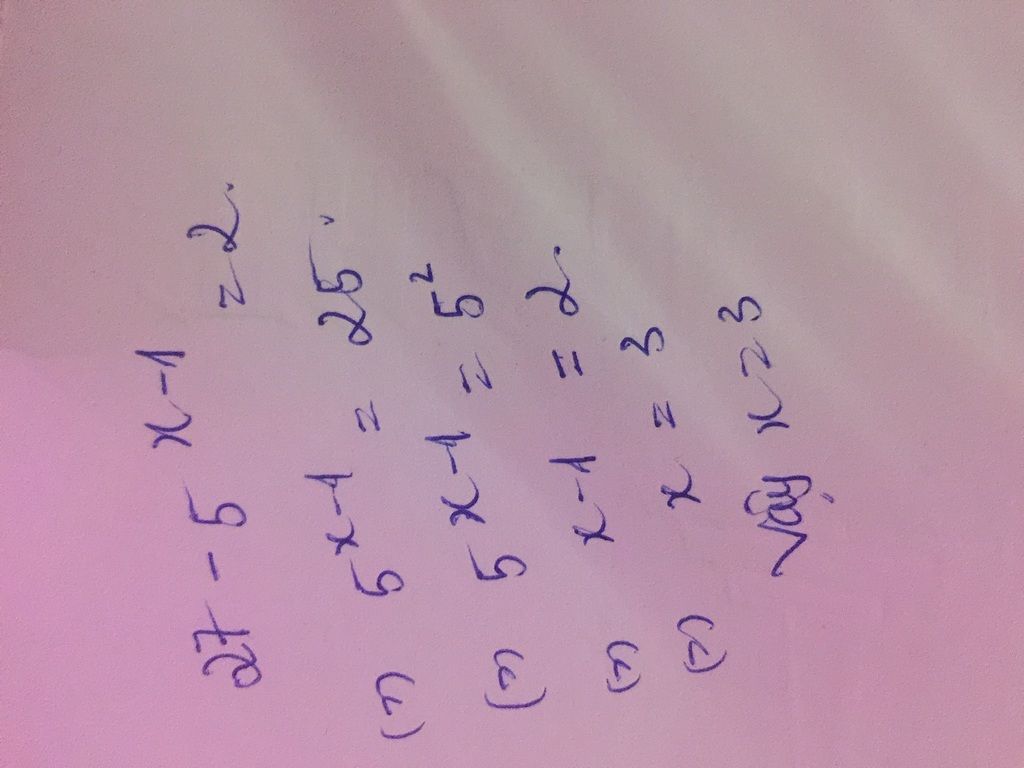 27 - 5^{x-1} = 2.
(=) 5^{x-1} = 25.
(=) 5^{x-1} = 5^2
(=) x-1 = 2.
(=) x = 3
Vậy x = 3